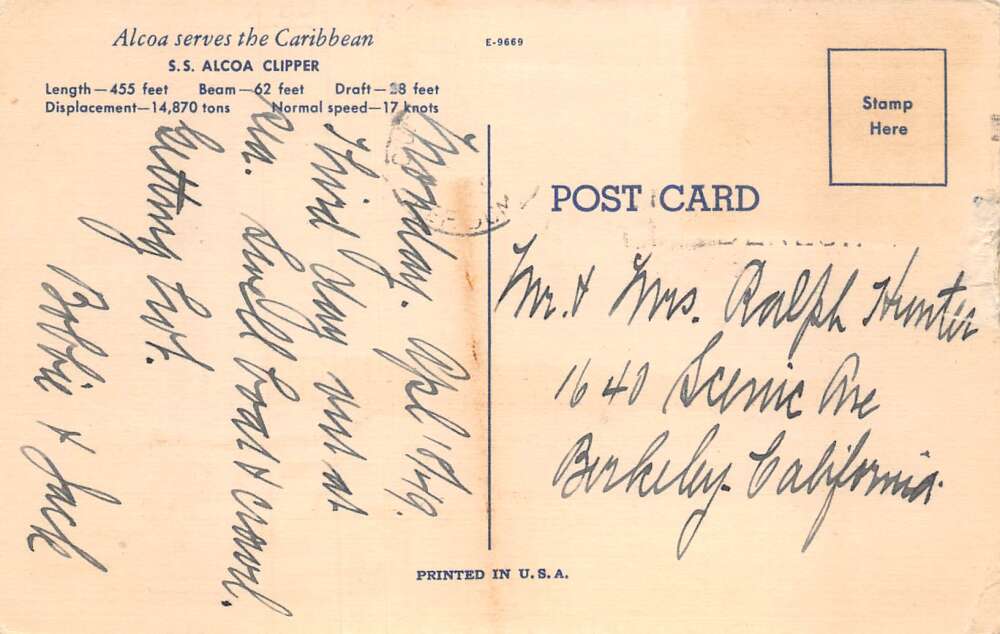 Alcoa serves the Caribbean
S.S. ALCOA CLIPPER
Length—455 feet Beam—62 feet Draft—28 feet
Displacement—14,870 tons Normal speed—17 knots
E-9669
Stamp
Here
POST CARD
Monday. Apl 18/49.
Third day out at
sea. Swell boat & crowd.
Getting hot.
Bobbie & Jack
Mr. & Mrs. Ralph Hunter
1640 Scenic Ave
Berkeley. California.
PRINTED IN U.S.A.